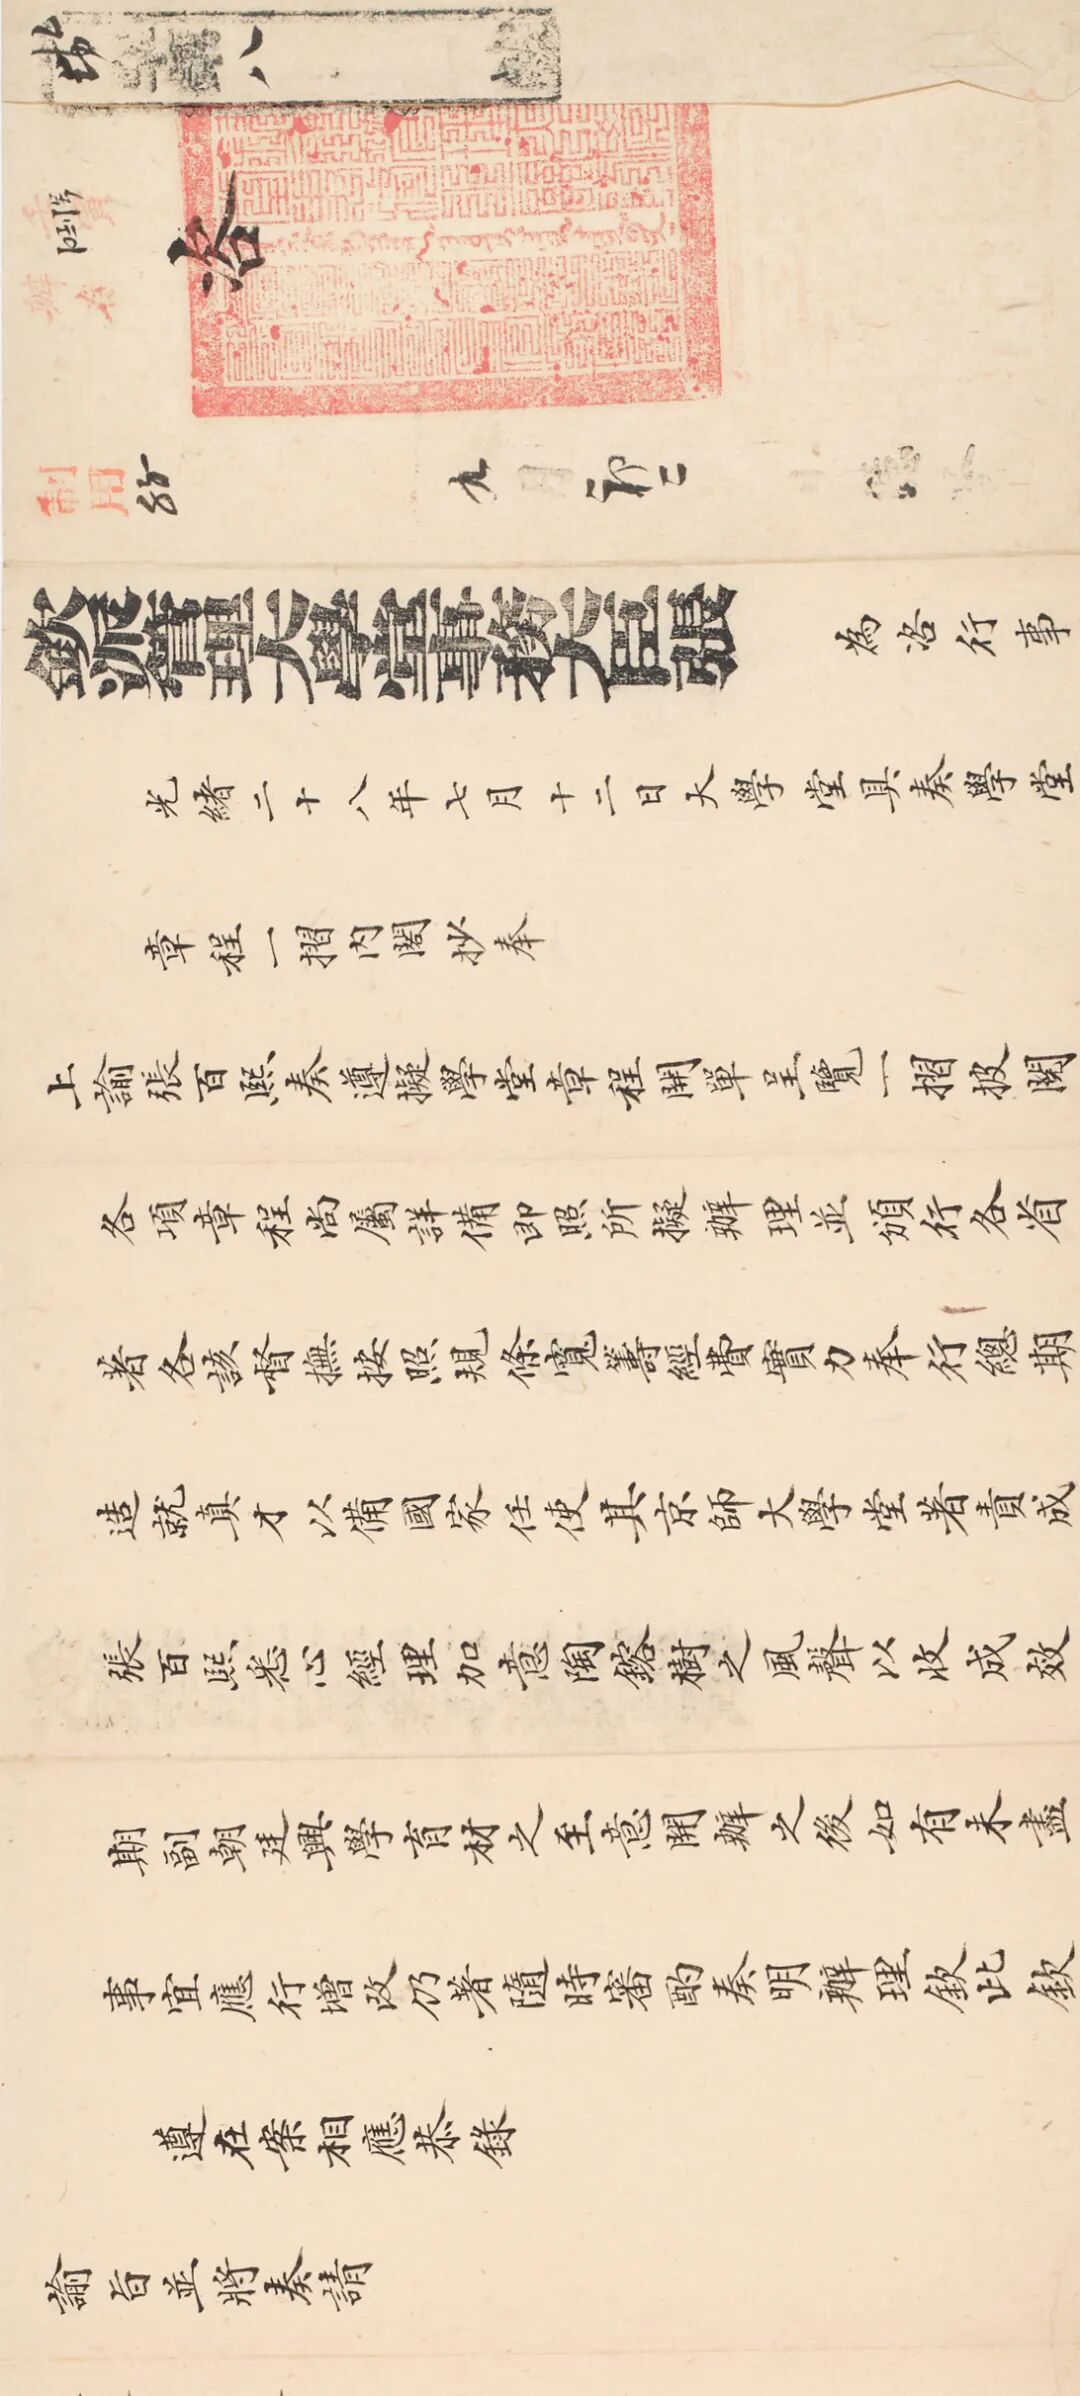 八
咨
制用
九月
欽派管理大學堂事務大臣張 為咨行事
光緒二十八年七月十二日大學堂具奏學堂
章程一摺內閣抄奉
上諭張百熙奏遵擬學堂章程開單呈覽一摺披閱
各項章程尚屬詳備即照所擬辦理並頒行各省
著各該督撫按照規條寬籌經費實力奉行總期
造就真才以備國家任使其京師大學堂著責成
張百熙悉心經理加意陶鎔樹之風聲以收成效
期副朝廷興學育材之至意開辦之後如有未盡
事宜應行增改仍著隨時審酌奏明辦理欽此欽
遵在案相應恭錄
諭旨並將奏請